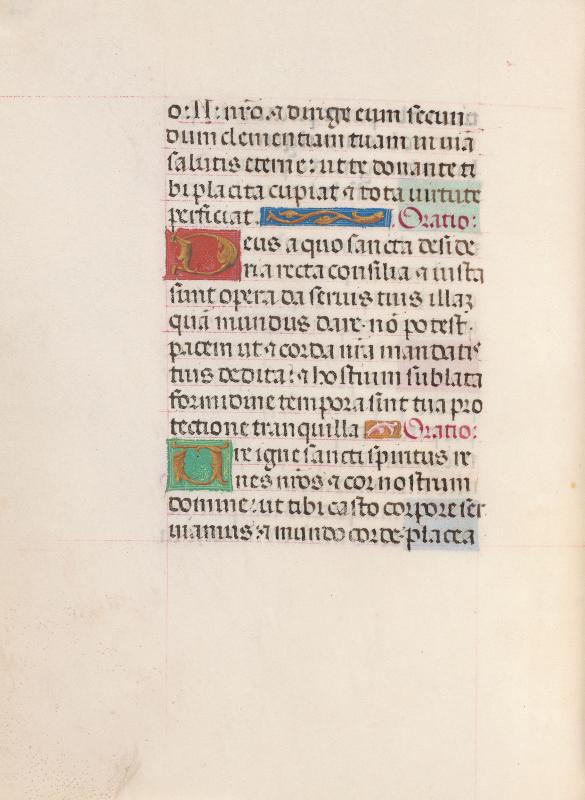 o: N: nr̄o. ⁊ dirige eum secun
dum clementiam tuam in uiā
salutis eterne: ut te donante ti
bi placita cupiat ⁊ tota uirtute
perficiat. Oratio:
Deus a quo sancta deside
ria recta consilia ⁊ iusta
sunt opera da seruis tuis illaʒ
quā mundus dare nō potest.
pacem ut ⁊ corda nr̄a mandatis
tuis dedita: ⁊ hostium sublata
formidine tempora sint tua pro
tectione tranquilla Oratio:
Ure igne sancti spiritus re
nes nr̄os ⁊ cor nostrum
domine: ut tibi casto corpore ser
uiamus ⁊ mundo corde placea